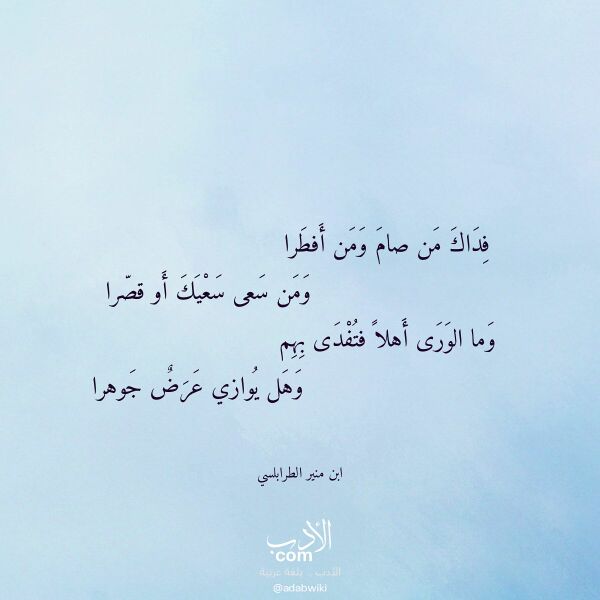 فِدَاكَ مَن صامَ وَمَن أَفطَرا
وَمَن سَعى سَعْيَكَ أَو قصّرا
وَما الوَرَى أَهلاً فتُفْدَى بِهِم
وَهَل يُوازي عَرَضٌ جَوهرا
ابن منير الطرابلسي
الأدب
com
الأدب .. بلغة عربية
@adabwiki